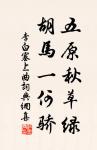 五原秋草绿
胡馬一何骄
李白塞上曲詞典網集